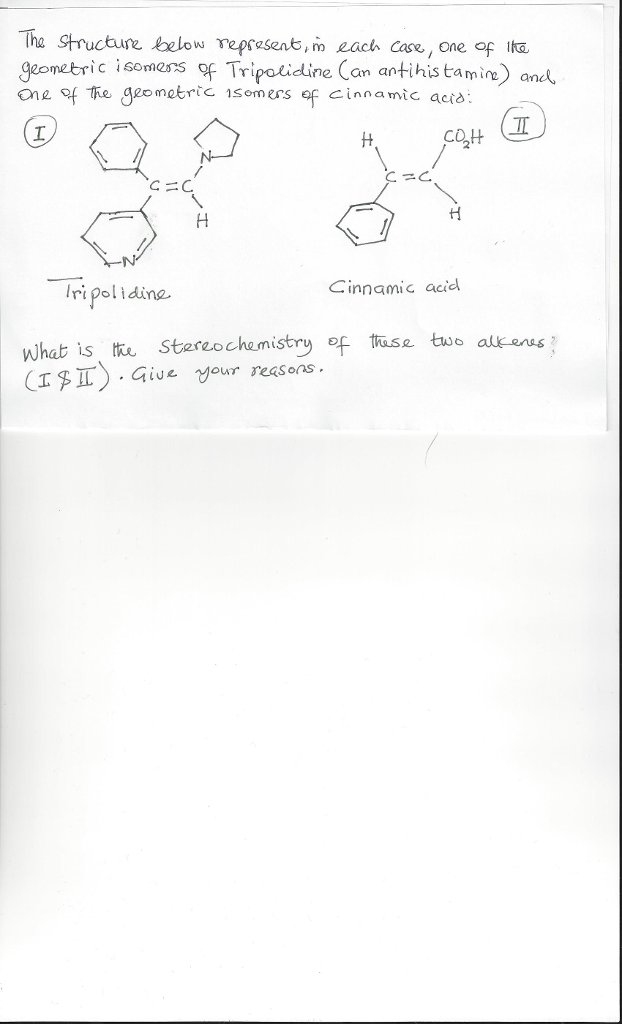 The structure below represent, in each case, one of the
geometric isomers of Tripolidine (an antihistamine) and
one of the geometric isomers of cinnamic acid:
I
II
H
CO₂H
N
C=C
C=C
H
H
N
Tripolidine
Cinnamic acid
What is the stereochemistry of these two alkenes?
(I $ II). Give your reasons.